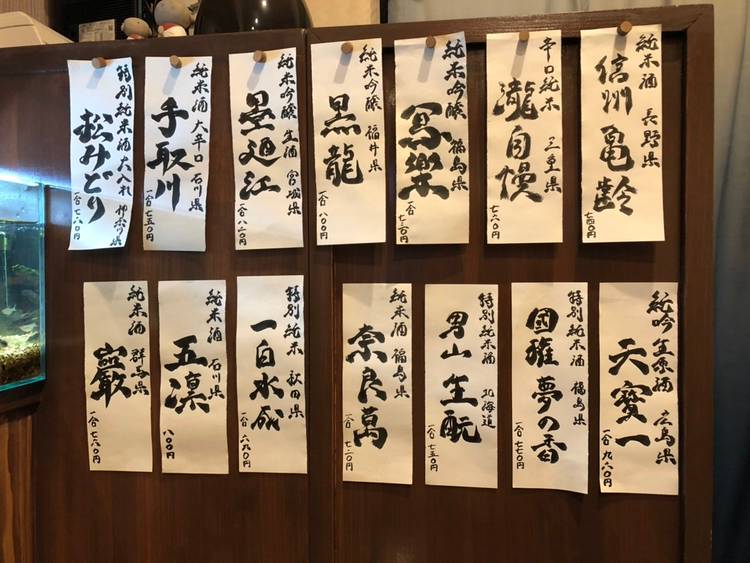 純米酒 長野県
信州亀齢
一合 七四〇円
辛口純米 三重県
瀧自慢
一合 七六〇円
純米吟醸 福島県
冩樂
一合 七三〇円
純米吟醸 福井県
黒龍
一合 八〇〇円
純米吟醸 生酒 宮城県
墨廼江
一合 八二〇円
純米酒 大辛口 石川県
手取川
一合 七五〇円
特別純米酒 火入れ 神奈川県
松みどり
一合 七八〇円
純吟生原酒 広島県
天寶一
一合 九八〇円
特別純米酒 福島県
國権 夢の香
一合 七七〇円
特別純米酒 北海道
男山 生酛
一合 七五〇円
純米酒 福島県
奈良萬
一合 七二〇円
特別純米 秋田県
一白水成
一合 六九〇円
純米酒 石川県
五凛
八〇〇円
純米酒 群馬県
巖
一合 七六〇円